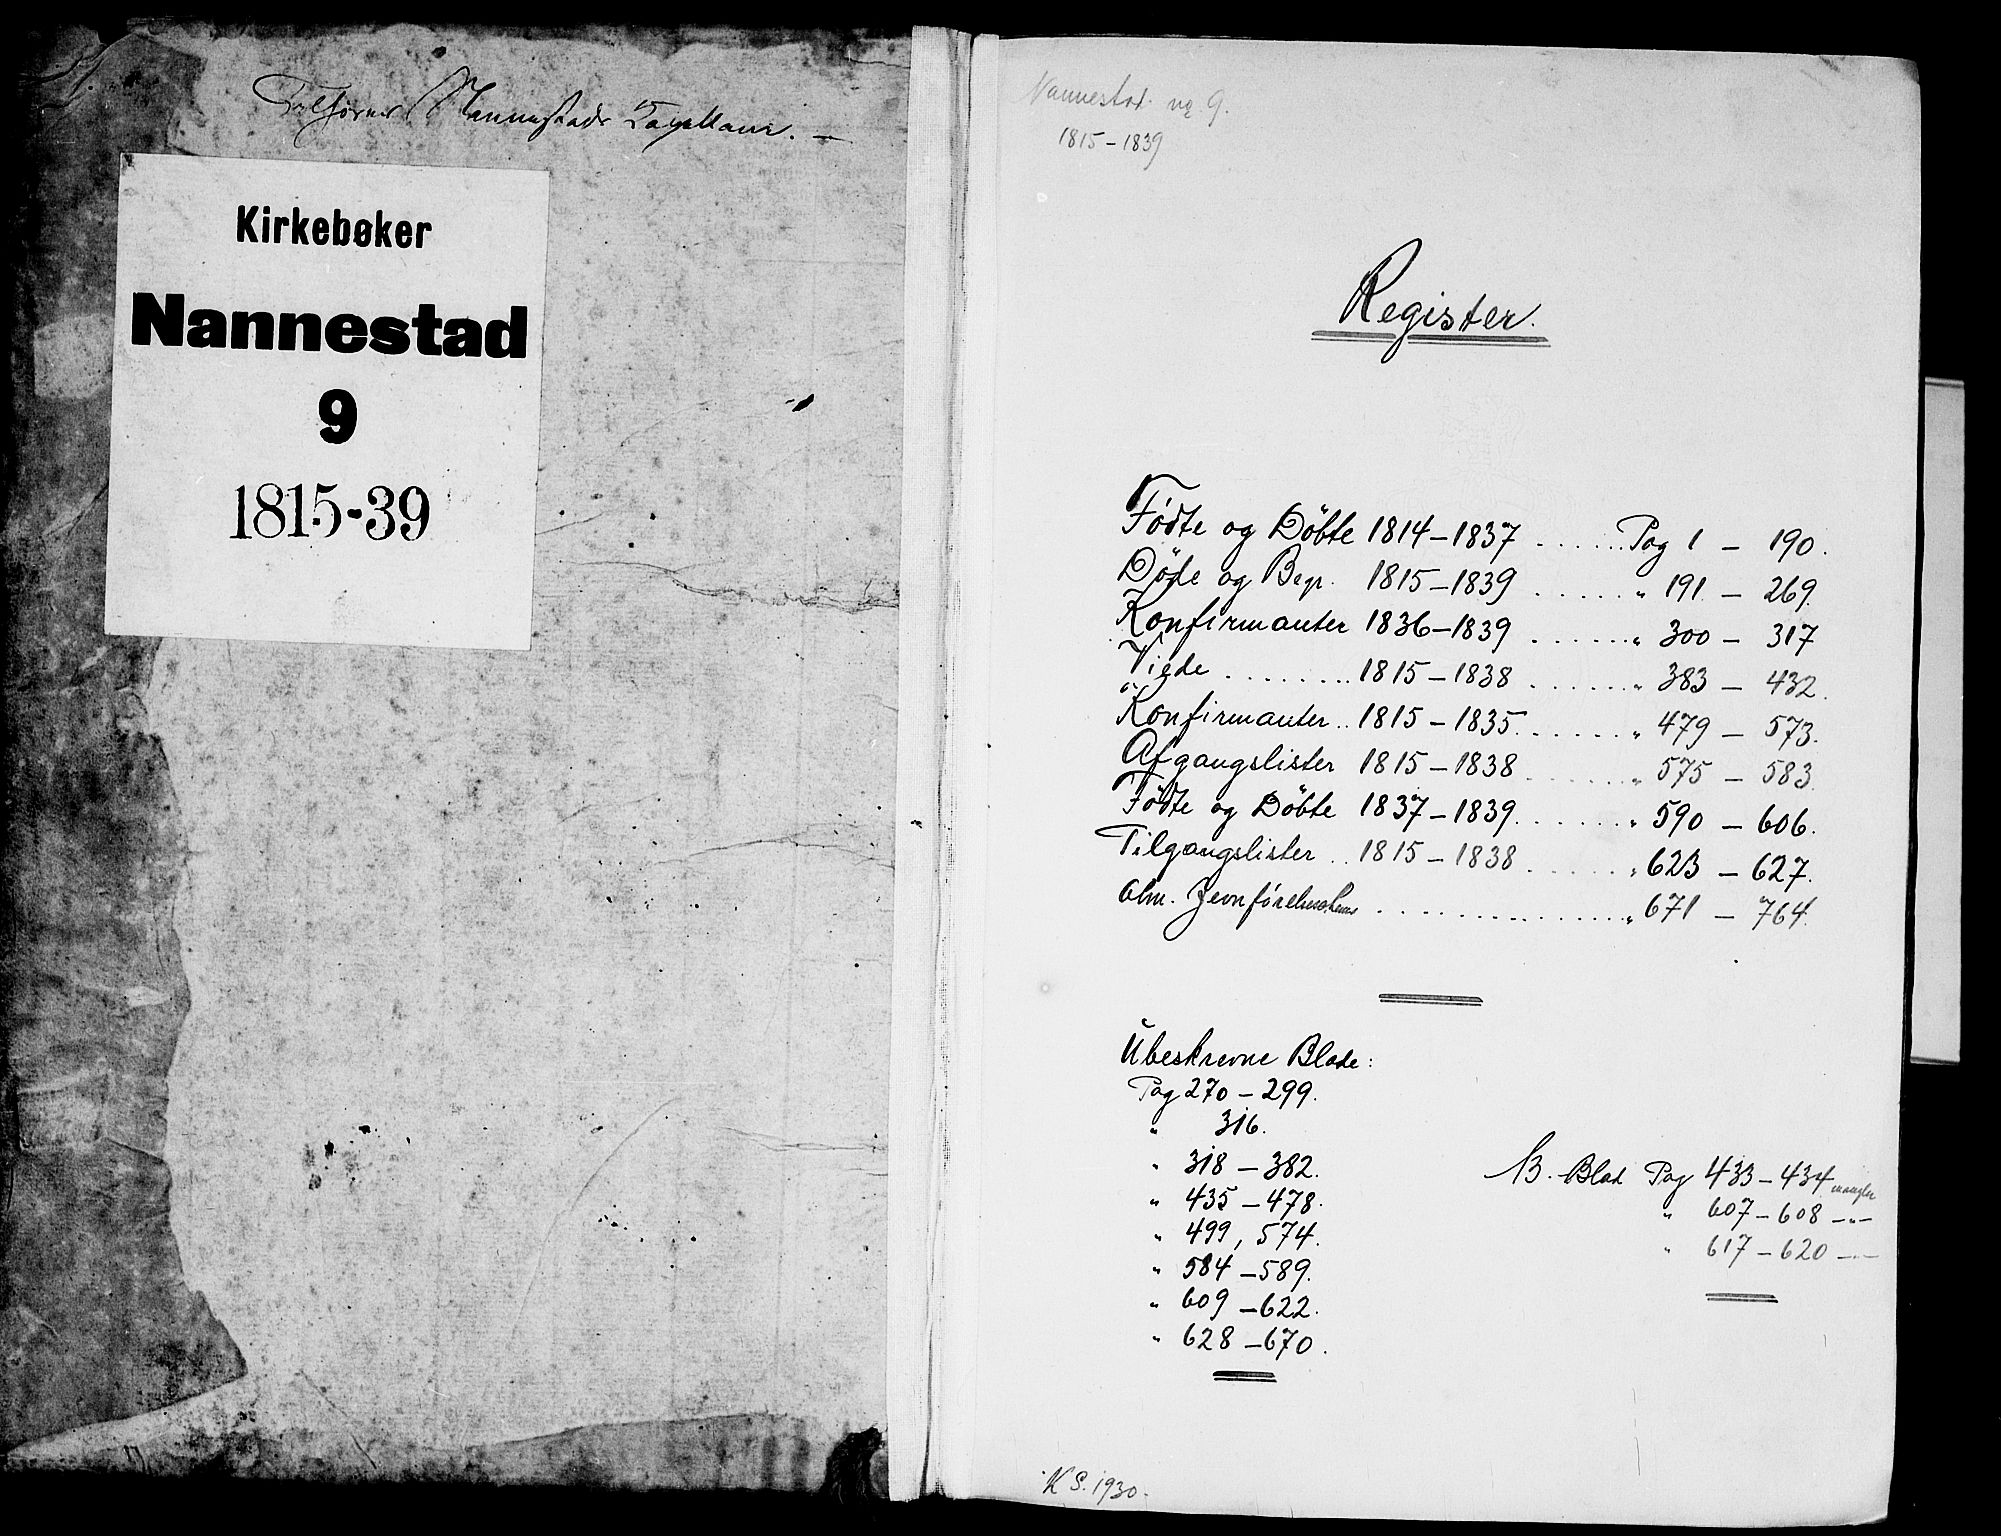 Tilhører Nannestads Capellani. —
Kirkebøker
Nannestad
9
1815-39
Nannestad nr. 9.
1815 – 1839
Register.
Födte og Döbte 1814 – 1837 . . . . . . Pag 1 – 190.
Döde og Begr. 1815 – 1839 . . . . . . " 191 – 269.
Konfirmanter 1836 – 1839 . . . . . . " 300 – 317
Viede . . . . . . . . 1815 – 1838 . . . . . . " 383 – 432.
Konfirmanter .. 1815 – 1835 . . . . . . " 479 – 573.
Afgangslister 1815 – 1838 . . . . . . " 575 – 583.
Födte og Döbte 1837 – 1839 . . . . . . " 590 – 606.
Tilgangslister .. 1815 – 1838 . . . . . . " 623 – 627.
Alm. Jevnförelses . . . . . . . . . . . . " 671 – 764.
Ubeskrevne Blade:
Pag 270 – 299.
" 316.
" 318 – 382.
" 435 – 478.
" 499, 574.
" 584 – 589.
" 609 – 622.
" 628 – 670.
NB. Blad Pag 433 – 434 mangler
" 607 – 608 – " –
" 617 – 620 – " –
K S. 1930.